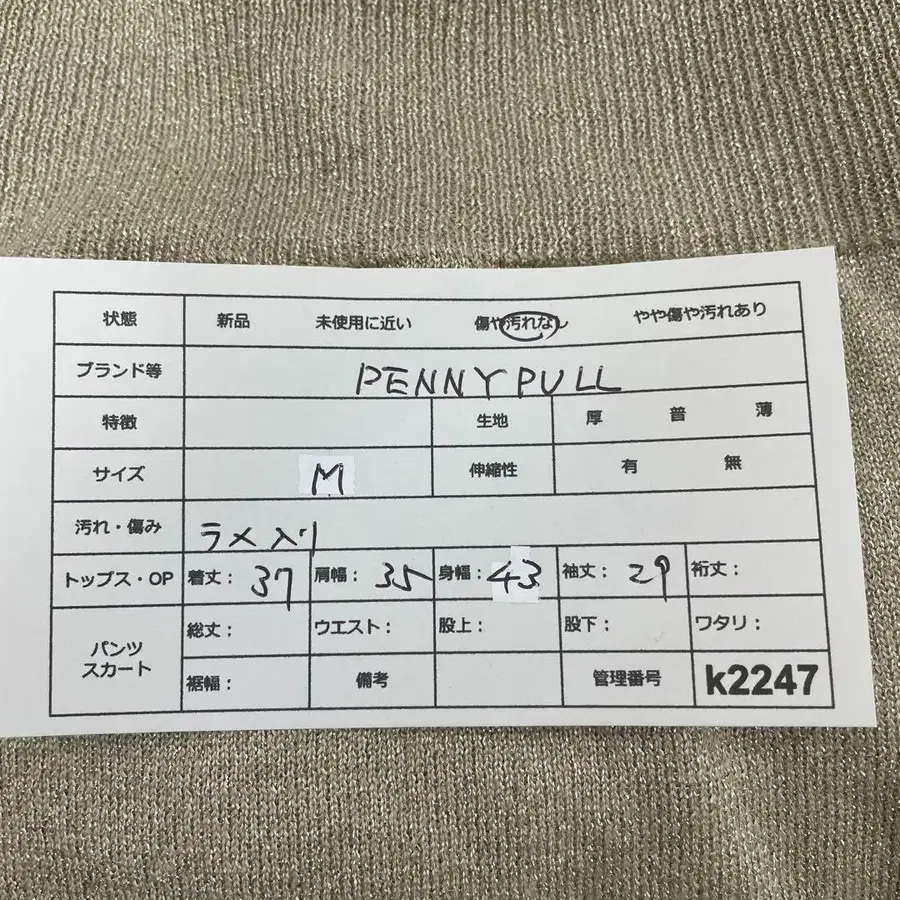 状態 新品 未使用に近い 傷や汚れなし やや傷や汚れあり
ブランド等 PENNYPULL
特徴 生地 厚 普 薄
サイズ M 伸縮性 有 無
汚れ・傷み ラメ入り
トップス・OP 着丈: 37 肩幅: 35 身幅: 43 袖丈: 29 裄丈:
パンツ スカート 総丈: ウエスト: 股上: 股下: ワタリ:
裾幅: 備考 管理番号 k2247